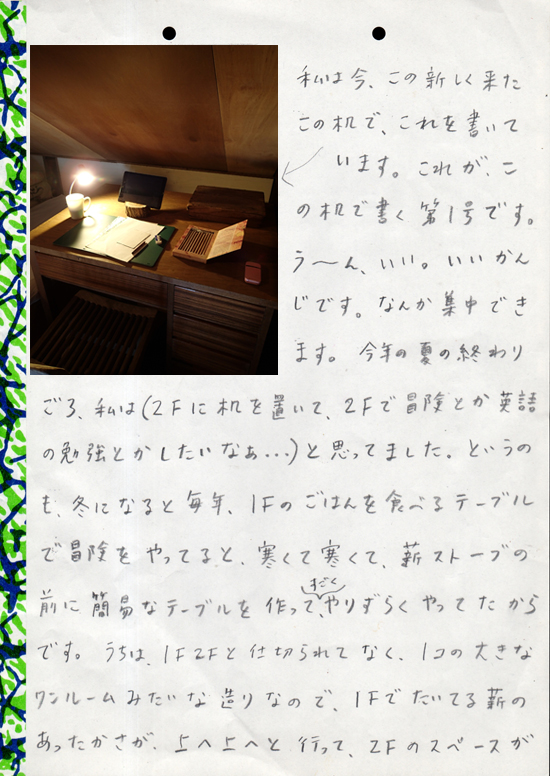 私は今、この新しく来た
この机で、これを書いて
います。これが、こ
の机で書く第1号です。
う〜ん、いい。いいかん
じです。なんか集中でき
ます。今年の夏の終わり
ごろ、私は(2Fに机を置いて、2Fで冒険とか英語
の勉強とかしたいなぁ...)と思ってました。というの
も、冬になると毎年、1Fのごはんを食べるテーブル
で冒険をやってると、寒くて寒くて、薪ストーブの
すごく
前に簡易なテーブルを作って、やりずらくやってたから
です。うちは、1F2Fと仕切られてなく、1コの大きな
ワンルームみたいな造りなので、1Fでたいてる薪の
あったかさが、上へ上へと行って、2Fのスペースが